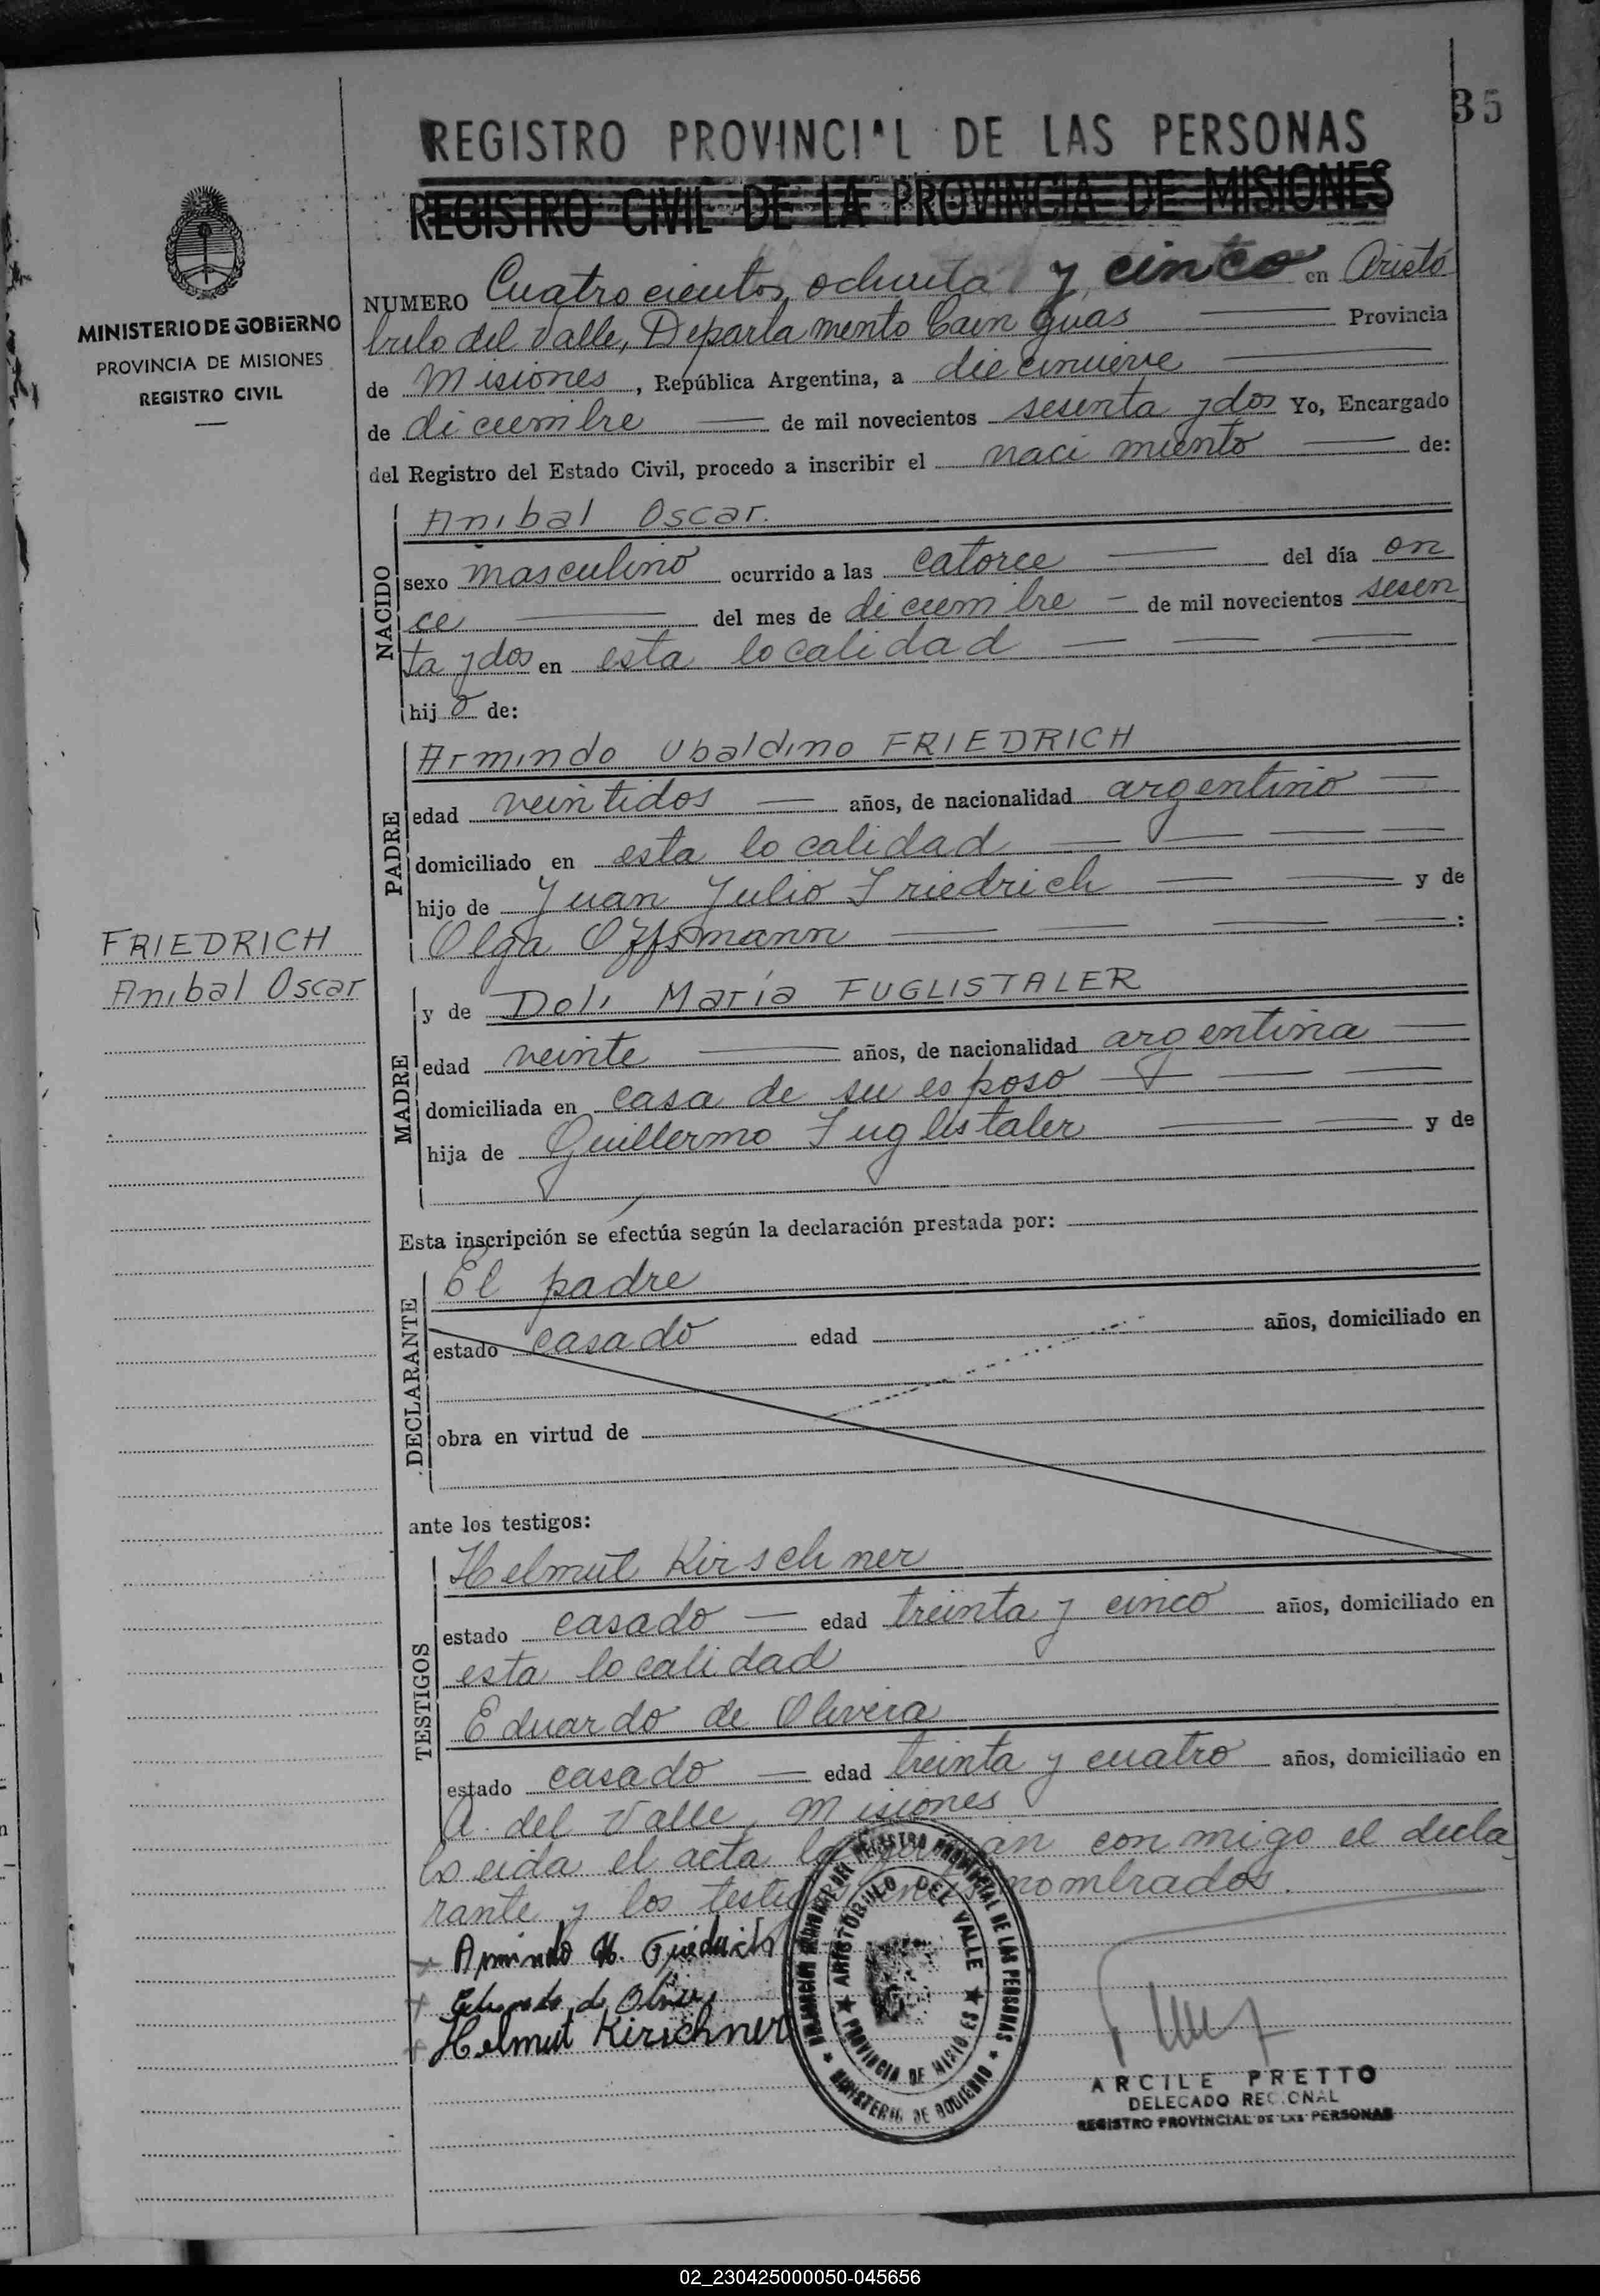 35
REGISTRO PROVINCIAL DE LAS PERSONAS
REGISTRO CIVIL DE LA PROVINCIA DE MISIONES
MINISTERIO DE GOBIERNO
PROVINCIA DE MISIONES
REGISTRO CIVIL
NUMERO Cuatrocientos ochenta y cinco en Aristó
bulo del Valle, Departamento Cainguas Provincia
de Misiones, República Argentina, a diecinueve
de diciembre de mil novecientos sesenta y dos Yo, Encargado
del Registro del Estado Civil, procedo a inscribir el nacimiento de:
NACIDO
Anibal Oscar.
sexo masculino ocurrido a las catorce del día on
ce del mes de diciembre de mil novecientos sesen
ta y dos en esta localidad
hijo de:
PADRE
Armindo Ubaldino FRIEDRICH
edad veintidos años, de nacionalidad argentino
domiciliado en esta localidad
hijo de Juan Julio Friedrich y de
Olga Offsmann :
FRIEDRICH
Anibal Oscar
MADRE
y de Doli María FUGLISTALER
edad veinte años, de nacionalidad argentina
domiciliada en casa de su esposo
hija de Guillermo Fuglistaler y de
Esta inscripción se efectúa según la declaración prestada por:
DECLARANTE
El padre
estado casado edad años, domiciliado en
obra en virtud de
ante los testigos:
TESTIGOS
Helmut Kirschner
estado casado edad treinta y cinco años, domiciliado en
esta localidad
Eduardo de Olivera
estado casado edad treinta y cuatro años, domiciliado en
A. del Valle, Misiones
Leida el acta la firman conmigo el decla
rante y los testigos nombrados.
Armindo U. Friedrich
Eduardo de Olivera
Helmut Kirschner
REGISTRO PROVINCIAL DE LAS PERSONAS
MINISTERIO DE GOBIERNO
ARISTOBULO DEL VALLE
PROVINCIA DE MISIONES
ARCILE PRETTO
DELEGADO REGIONAL
REGISTRO PROVINCIAL DE LAS PERSONAS
02_230425000050-045656